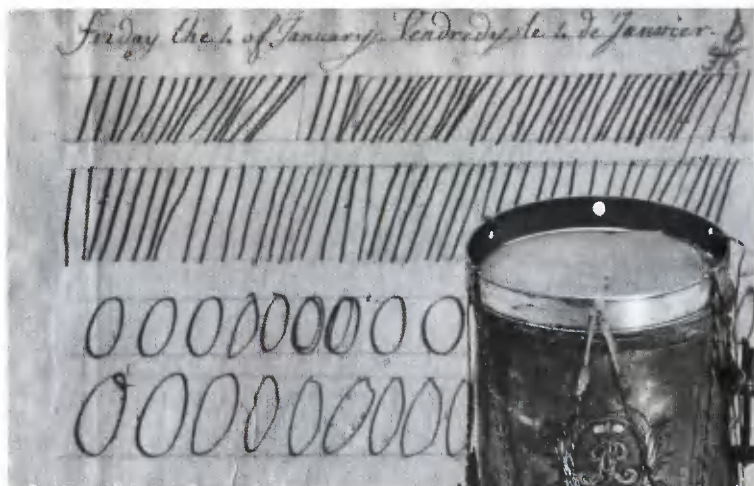 Friday the 1. of January. Vendredy le 1. de Janvier.